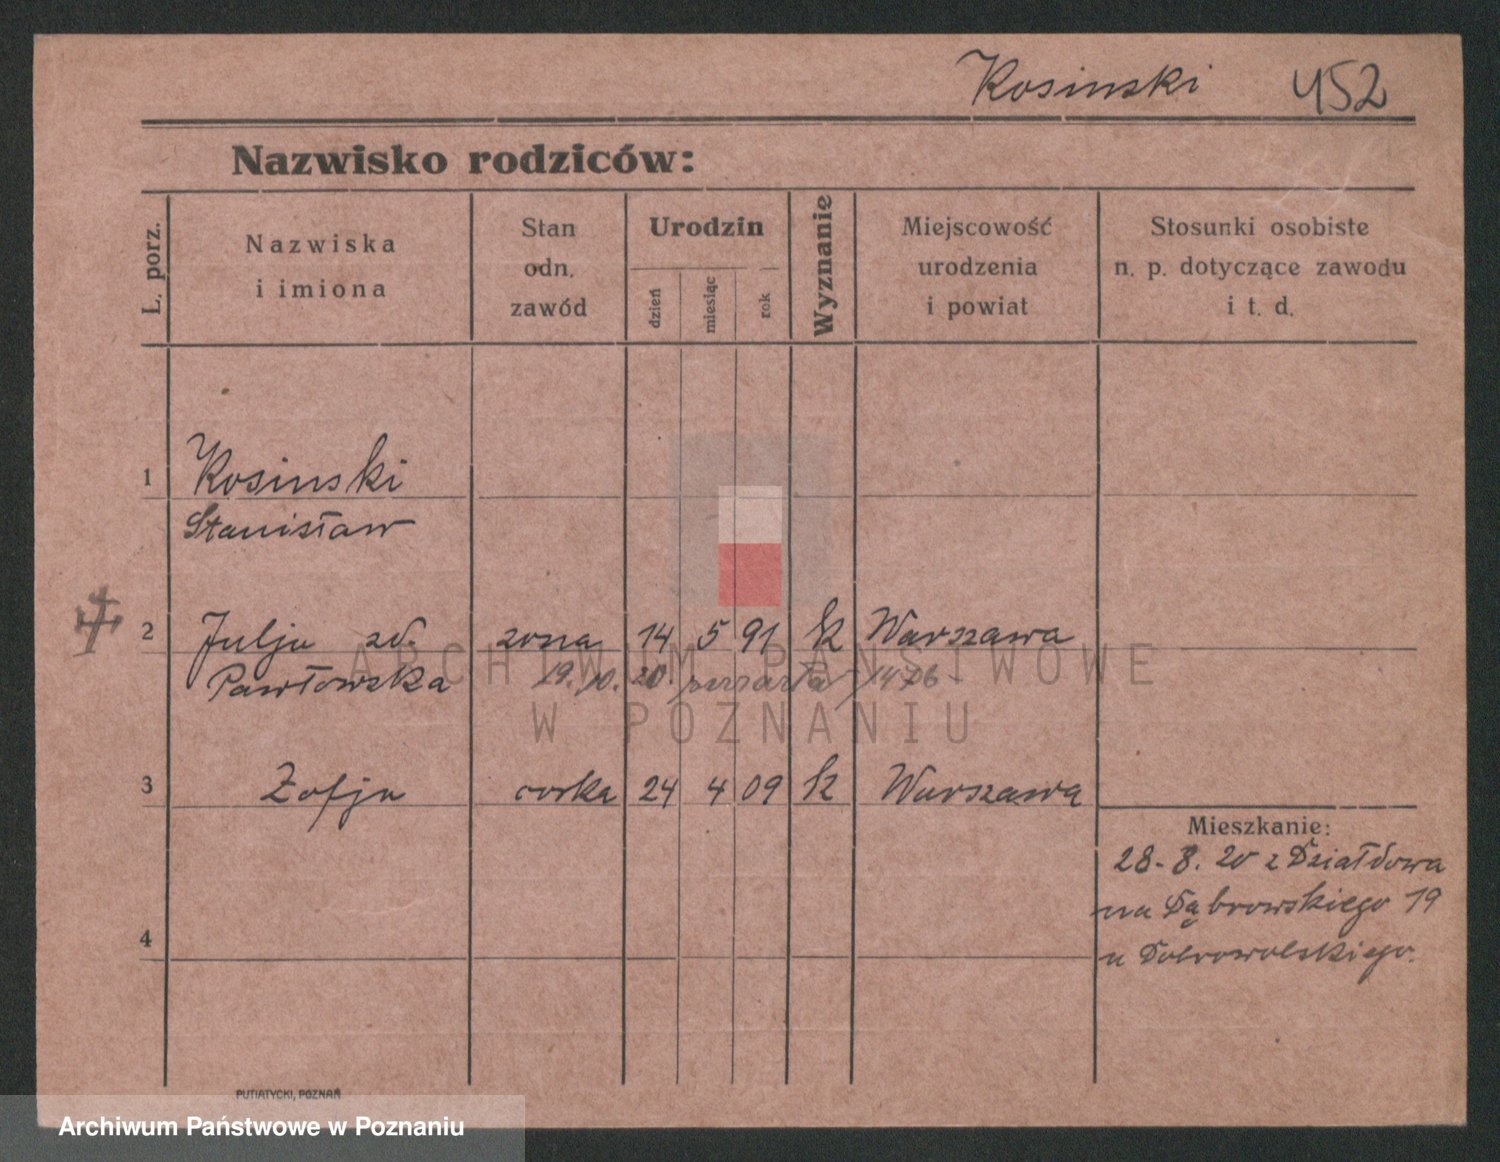 Kosinski 452
Nazwisko rodziców:
L. porz.
Nazwiska
i imiona
Stan
odn.
zawód
Urodzin
dzień
miesiąc
rok
Wyznanie
Miejscowość
urodzenia
i powiat
Stosunki osobiste
n. p. dotyczące zawodu
i t. d.
1 Kosinski
Stanisław
2 Julja zd. zona 14 5 91 k Warszawa
Pawłowska 19. 10. 20. zmarła 1476
3 Zofja corka 24 4 09 k Warszawa
Mieszkanie:
28-8. 20 z Działdowa
na Dąbrowskiego 19
u Dobrowolskiego.
4
ARCHIWUM PAŃSTWOWE
W POZNANIU
PUTIATYCKI, POZNAŃ
Archiwum Państwowe w Poznaniu